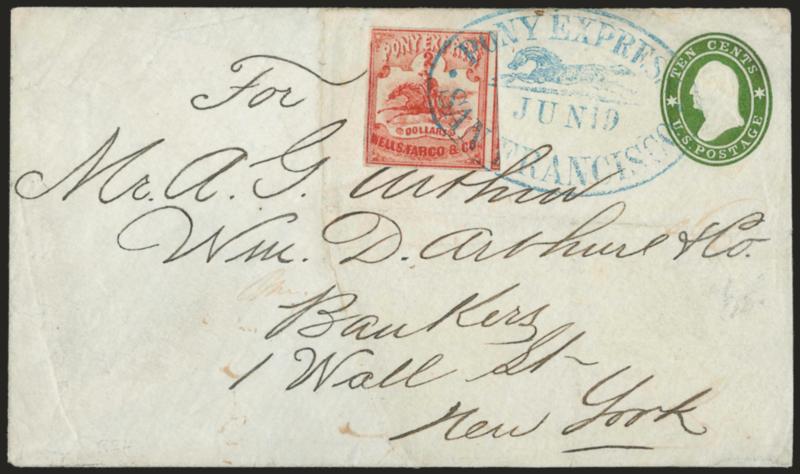 PONY EXPRESS
2
DOLLARS
WELLS, FARGO & CO.
PONY EXPRESS
JUN 19
SAN FRANCISCO
TEN CENTS
U.S. POSTAGE
For
Mr. A. G. Arthur
Wm. D. Arthure & Co.
Bankers
1 Wall St
New York